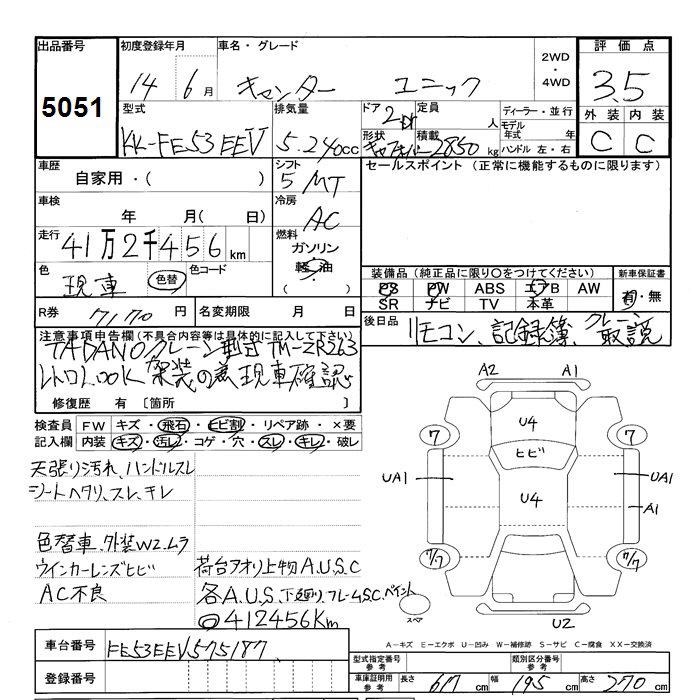 出品番号 初度登録年月 車名・グレード 2WD・4WD 評価点
5051 14年 6月 キャンター ユニック 3.5
型式 排気量 ドア 定員 人 ディーラー・並行 外装 内装
KK-FE53EEV 5.240cc 2Dr モデル年式 年 C C
形状 積載 2850kg ハンドル 左・右
車歴 シフト セールスポイント (正常に機能するものに限ります)
自家用・( ) 5 MT
車検 冷房
年 月(日) AC
走行 燃料
41万2千456km ガソリン
色 色替 色コード 軽油 装備品 (純正品に限り〇をつけてください) 新車保証書
現車 ( ) PS PW ABS エアB AW 有・無
SR ナビ TV 本革
R券 7170円 名変期限 月 日 後日品 リモコン、記録簿、クレーン取説
注意事項申告欄 (不具合内容等は具体的に記入して下さい)
TADANOクレーン型式TM-ZR263
レトロLOOK 架装の為現車確認
修復歴 有〔箇所 〕
検査員 FW キズ・飛石・ヒビ割・リペア跡・×要
記入欄 内装 キズ・汚レ・コゲ・穴・スレ・キレ・破レ
天張り汚れ、ハンドルスレ
シートヘタリ、スレ、キレ
色替車、外装W2、ムラ
ウインカーレンズヒビ 荷台アオリ上物A.U.S.C
AC不良 各A.U.S 下廻りフレームS.C.ペイント
◎412456Km
A2 A1
U4
7 ヒビ 7
UA1 UA1
U4 A1
7/7 7/7
スペア U2
A-キズ E-エクボ U-凹み W-補修跡 S-サビ C-腐食 XX-交換済
車台番号 FE53EEV575187
登録番号
型式指定番号 参考 類別区分番号 参考
車庫証明用 参考 長さ 617cm 幅 195cm 高さ 270cm